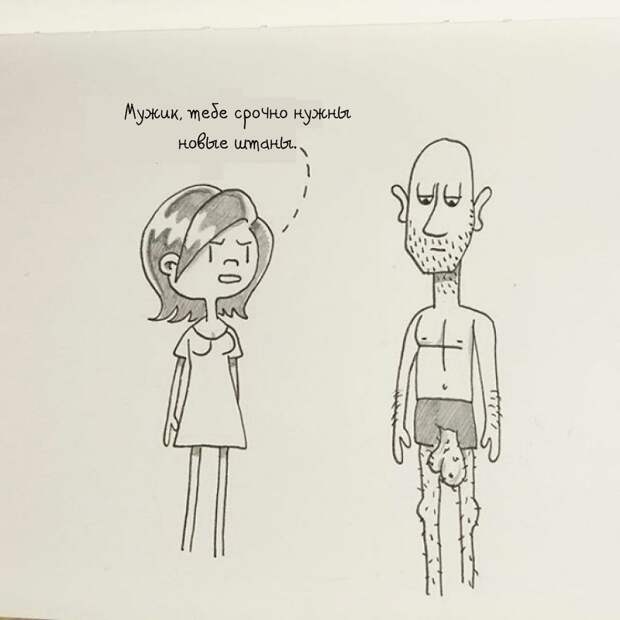 Мужик, тебе срочно нужны
новые штаны.